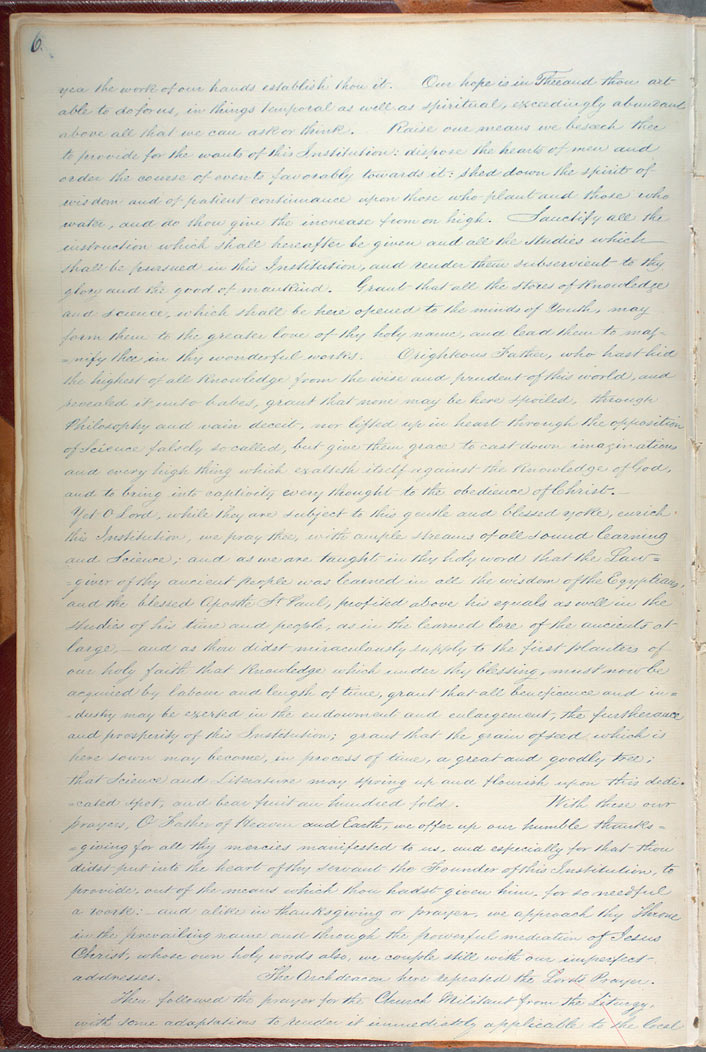 6.
yea the work of our hands establish thou it. Our hope is in Thee and thou art
able to do for us, in things temporal as well as spiritual, exceedingly abundant
above all that we can ask or think. Raise our means we beseech thee
to provide for the wants of this Institution: dispose the hearts of men and
order the course of events favorably towards it: shed down the spirits of
wisdom and of patient continuance upon those who plant and those who
water, and do thou give the increase from on high. Sanctify all the
instruction which shall hereafter be given and all the studies which
shall be pursued in this Institution, and render them subservient to thy
glory and the good of mankind. Grant that all the stores of Knowledge
and science, which shall be here opened to the minds of Youth, may
form them to the greater love of thy holy name, and lead them to mag-
=nify thee in thy wonderful works. O righteous Father, who hast hid
the highest of all Knowledge from the wise and prudent of this world, and
revealed it unto babes, grant that none may be here spoiled, through
Philosophy and vain deceit, nor lifted up in heart through the opposition
of Science falsely so called, but give them grace to cast down imaginations
and every high thing which exalteth itself against the Knowledge of God,
and to bring into captivity every thought to the obedience of Christ.—
Yet O Lord, while they are subject to this gentle and blessed yoke, enrich
this Institution, we pray thee, with ample streams of all sound learning
and Science; and as we are taught in thy holy word that the Law=
=giver of thy ancient people was learned in all the wisdom of the Egyptians,
and the blessed Apostle St Paul, profited above his equals as well in the
studies of his time and people, as in the learned lore of the ancients at
large,— and as thou didst miraculously supply to the first planters of
our holy faith that Knowledge which under thy blessing, must now be
acquired by labour and length of time, grant that all beneficence and in=
=dustry may be exerted in the endowment and enlargement, the furtherance
and prosperity of this Institution; grant that the grain of seed which is
here sown may become, in process of time, a great and goodly tree;
that Science and Literature may spring up and flourish upon this dedi=
=cated spot, and bear fruit an hundred fold. With these our
prayers, O Father of Heaven and Earth, we offer up our humble thanks=
=giving for all thy mercies manifested to us, and especially for that thou
didst put into the heart of thy servant the Founder of this Institution, to
provide, out of the means which thou hadst given him, for so needful
a work:— and alike in thanksgiving or prayer, we approach thy Throne
in the prevailing name and through the powerful mediation of Jesus
Christ, whose own holy words also, we couple still with our imperfect
addresses. The Archdeacon here repeated the Lords Prayer.
Then followed the prayer for the Church Militant from the Liturgy,
with some adaptations to render it immediately applicable to the local